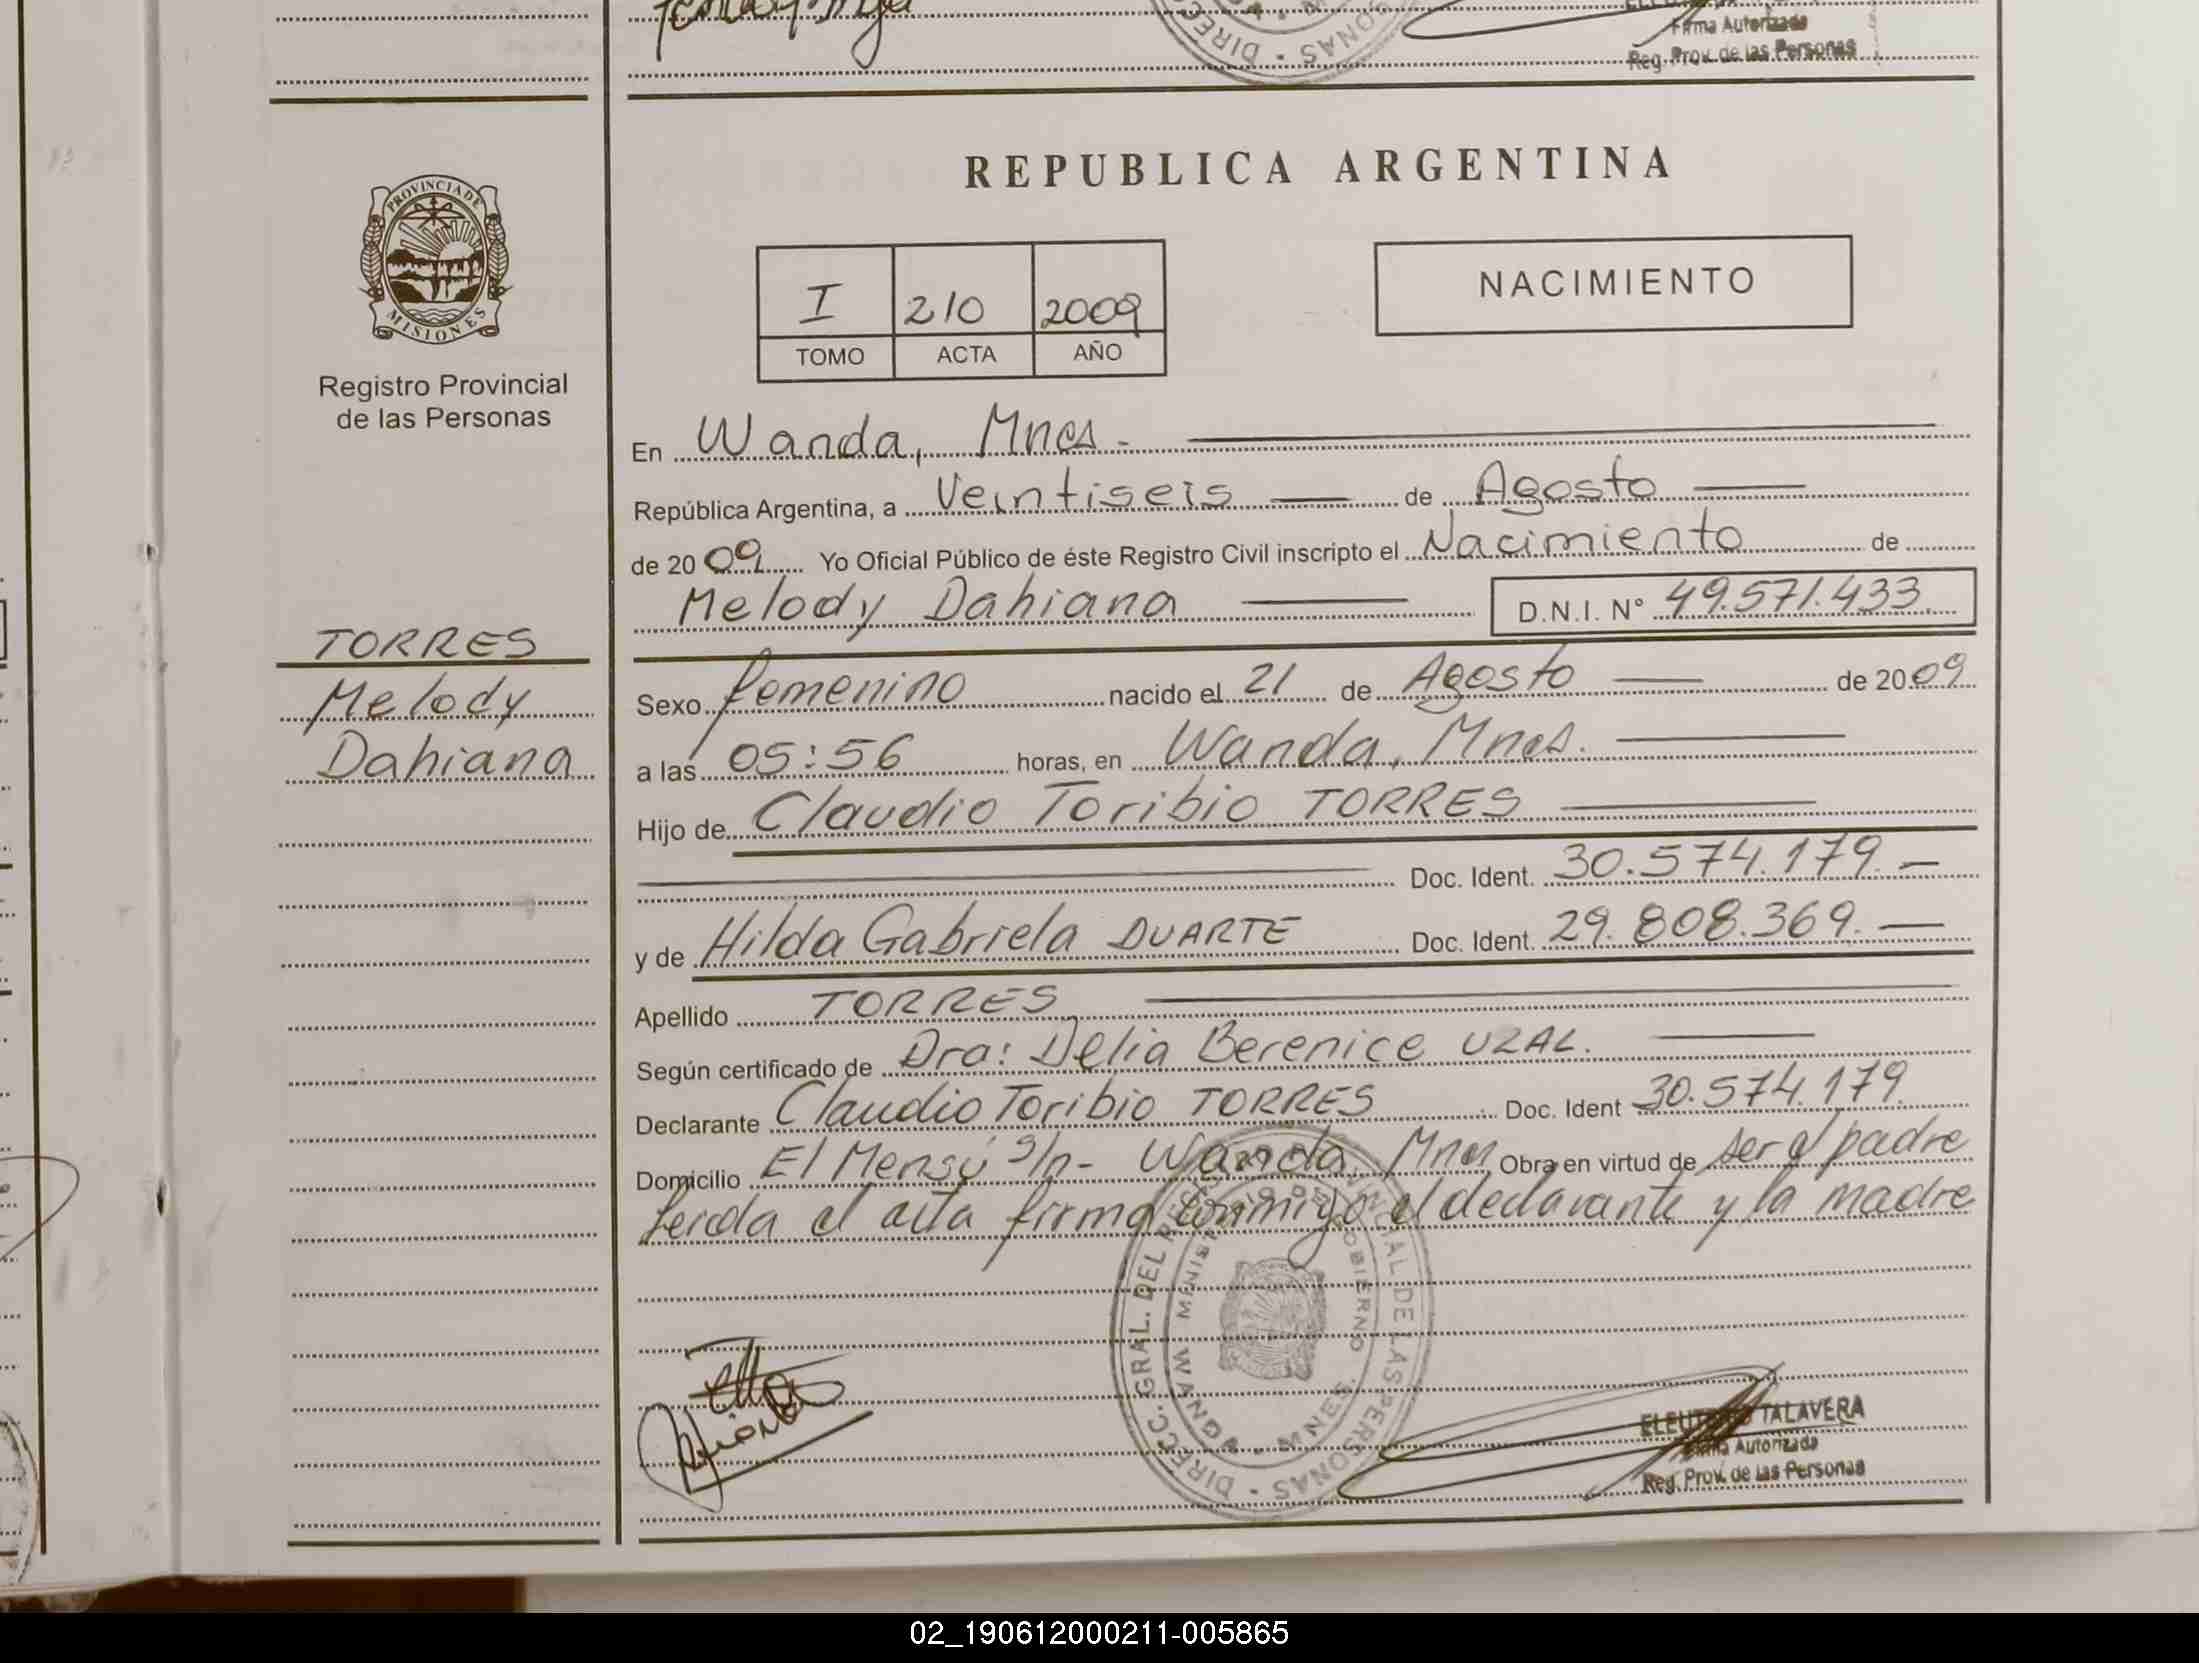 Firma Autorizada
Reg. Prov. de las Personas
REPUBLICA ARGENTINA
PROVINCIA DE
MISIONES
Registro Provincial
de las Personas
I 210 2009
TOMO ACTA AÑO
NACIMIENTO
En Wanda, Mnes.-
República Argentina, a Veintiseis de Agosto
de 2009 Yo Oficial Público de éste Registro Civil inscripto el Nacimiento de
Melody Dahiana D.N.I. N° 49.571.433.
TORRES
Melody
Dahiana
Sexo femenino nacido el 21 de Agosto de 2009
a las 05:56 horas, en Wanda, Mnes.
Hijo de Claudio Toribio TORRES
Doc. Ident. 30.574.179.-
y de Hilda Gabriela DUARTE Doc. Ident. 29.808.369.-
Apellido TORRES
Según certificado de Dra: Delia Berenice UZAL.
Declarante Claudio Toribio TORRES Doc. Ident 30.574.179.
Domicilio El Mensú s/n- Wanda, Mnes Obra en virtud de ser el padre
Leida el acta firma conmigo el declarante y la madre
DIRECC. GRAL. DEL REG. PROVINCIAL DE LAS PERSONAS - WANDA - MNES.
MINISTERIO DE GOBIERNO
TALAVERA
Firma Autorizada
Reg. Prov. de las Personas
02_190612000211-005865